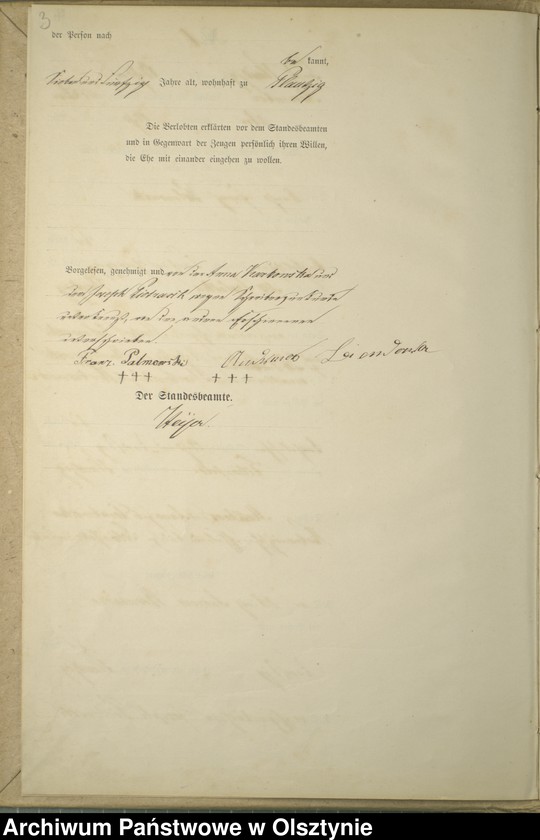 3
der Person nach
be kannt,
Jahre alt, wohnhaft zu Plautzig
Die Verlobten erklärten vor dem Standesbeamten
und in Gegenwart der Zeugen persönlich ihren Willen,
die Ehe mit einander eingehen zu wollen.
Vorgelesen, genehmigt und von der Anna und
dem Joseph wegen Schreibensunkunde
unterkreuzt, von den Erschienenen
unterschrieben.
Franz Palmowski Andreas
+++ +++
Der Standesbeamte.
Archiwum Państwowe w Olsztynie